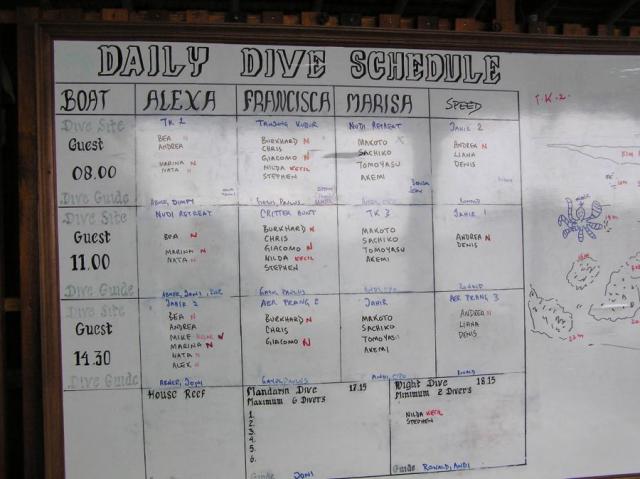 DAILY DIVE SCHEDULE
BOAT ALEXA FRANCISCA MARISA SPEED
T.K.2
Dive Site TK 1 TANJUNG KUBUR NUDI RETREAT JAHIR 2
Guest
08.00
BEA N
ANDREA
MARINA N
NATA N
BURKHARD N
CHRIS
GIACOMO N
NILDA KECIL
STEPHEN
MAKOTO X
SACHIKO
TOMOYASU
AKEMI
ANDREA N
LIANA
DENIS
Dive Guide ABNER, DIMPY PAULUS
Dive Site NUDI RETREAT CRITTER HUNT TK 3 JAHIR 1
Guest
11.00
BEA N
MARINA N
NATA N
BURKHARD N
CHRIS
GIACOMO N
NILDA KECIL
STEPHEN
MAKOTO
SACHIKO
TOMOYASU
AKEMI
ANDREA N
DENIS
Dive Guide PAULUS RONALD
Dive Site JAHIR 2 AER PRANG 2 JAHIR AER PRANG 3
Guest
14.30
BEA N
ANDREA
MIKE
MARINA N
NATA N
ALEX
BURKHARD N
CHRIS
GIACOMO N
MAKOTO
SACHIKO
TOMOYASU
AKEMI
ANDREA N
LIANA
DENIS
Dive Guide ABNER, JONI PAULUS RONALD
House Reef
Mandarin Dive 17.15
Maximum 6 Divers
1.
2.
3.
4.
5.
6.
Guide JONI
Night Dive 18.15
Minimum 2 Divers
NILDA KECIL
STEPHEN
Guide RONALD, ANDI